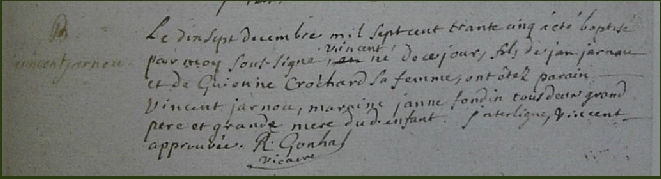 B
vincent jarnou
Le dixsept decembre mil sept cent trante cinq a été baptisé
par moy sous-signé, vincent né de ce jour, fils de jan jarnou
et de Guionne Crochard sa femme, ont étéz parain
vincent jarnou, maraine janne fondin tous deux grand
pere et grande mere dud. enfant. interligne, vincent
approuvée. R. Gonhas
vicaire